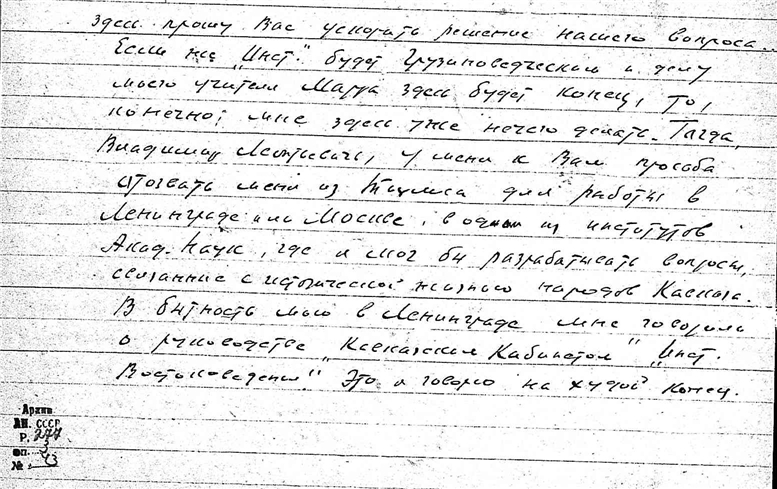 здесь прошу Вас ускорить решение нашего вопроса.
Если же „Инст." будет Грузиноведческим и делу
моего учителя Марра здесь будет конец, то,
конечно, мне здесь уже нечего делать. Тагда,
Владимир Леонтьевич, у меня к Вам прозба
отозвать меня из Тбилиса для работы в
Ленинграде или Москве, в одном из институтов
Акад. Наук, где я мог бы разрабатывать вопросы,
связанные с исторической жизнью народов Кавказа.
В бытность мою в Ленинграде мне говорили
о руководстве „Кавказским Кабинетом" „Инст.
Востоковедения." Это я говорю на худой конец.
Архив
АН. СССР
Р. 277
оп. 3
№ 43